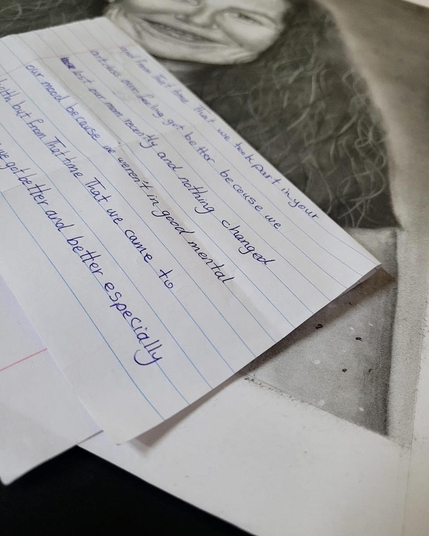 from That time That we took part in your
feeling got better because we
lost our mom recently and nothing changed
our mood because we weren't in good mental
but from That time That we came to
we got better and better especially